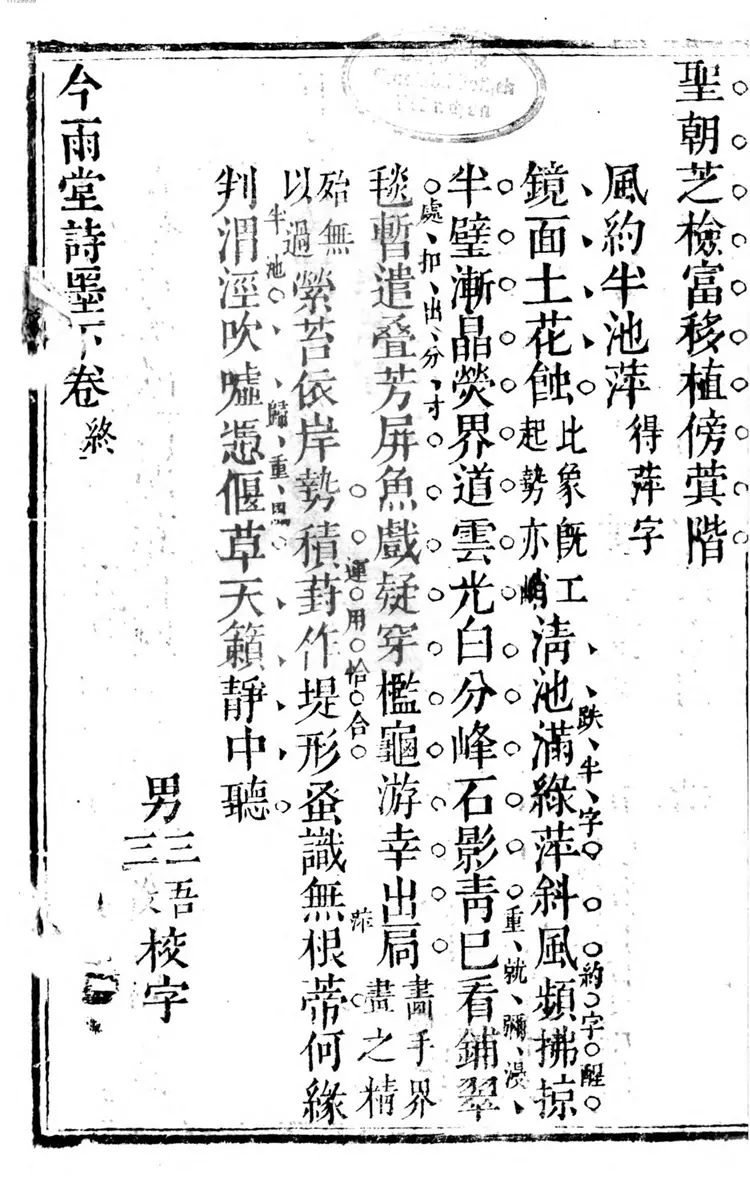 聖朝芝檢富移植傍蓂階
風約半池萍 得萍字
鏡面土花蝕 比象既工起勢亦峭 淸池滿綠萍斜風頻拂掠
跌半字 約字醒
半壁漸晶熒界道雲光白分峰石影靑已看鋪翠
重就彌漫
毯暫遣叠芳屏魚戲疑穿檻龜游幸出局 畫手界畫之精
處扣出分寸
殆無以過 縈苔依岸勢積葑作堤形蚤識無根蔕何緣
半池 運用恰合
判渭涇吹噓憑偃草天籟靜中聽
歸重
男三吾
三 校字
今雨堂詩墨下卷終